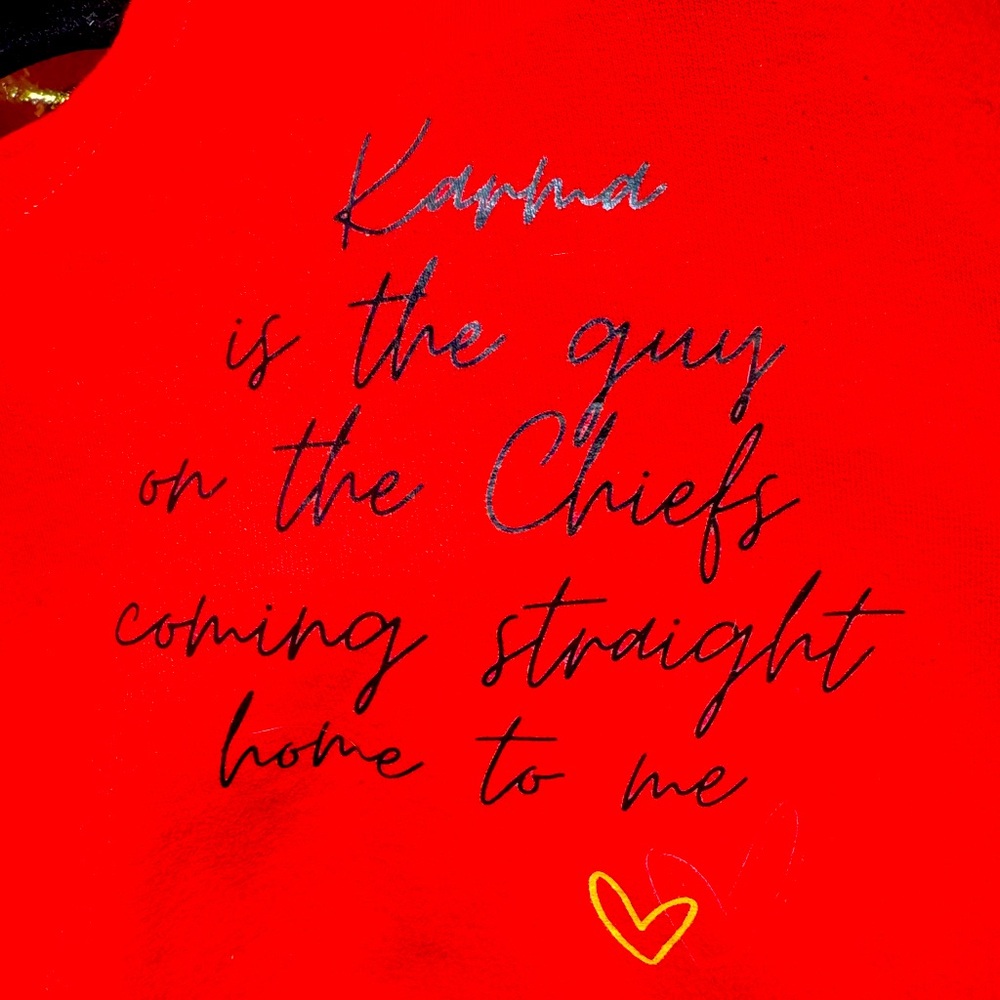 Karma
is the guy
on the Chiefs
coming straight
home to me